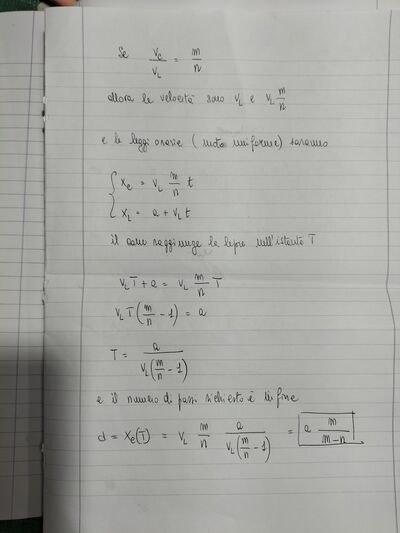 Se v_c / v_L = m / n
allora le velocità sono v_L e v_L m/n
e le leggi orarie (moto uniforme) saranno
{ x_c = v_L m/n t
x_L = a + v_L t
il cane raggiunge la lepre nell'istante T
v_L T + a = v_L m/n T
v_L T (m/n - 1) = a
T = a / (v_L (m/n - 1))
e il numero di passi richiesto è infine
d = x_c(T) = v_L m/n a / (v_L (m/n - 1)) = a m / (m-n)